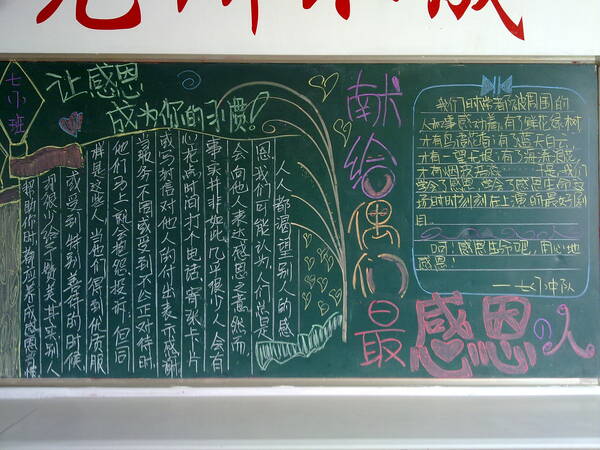 七小班
让感恩
成为你的习惯!
人人都渴望别人的感
恩,我们可能认为人们总是
会向他人表达感恩之意。然而,
事实并非如此,几乎很少人会有
心花点时间打个电话、寄张卡片
或写封信对他人的付出表示感谢
当服务不周或受到不公正对待时,
他们马上就会抱怨、投诉;但同
样是这些人,当他们得到优质服
或受到特别善待的时候
却很少给予赞美。其实别人
帮助你时,都应养成感恩习惯
献给偶们最
感恩の人
我们日常都被周围的
人和事感动着,有了鲜花绿树
才有鸟语花香;有了蓝天白云,
才有一望无垠;有了海浪滔滔,
才有烟波浩淼……是我们
学会了感恩,学会了感恩生命
这时时刻刻在上演的最好剧
目。
呵!感恩生活吧,用心地
感恩!